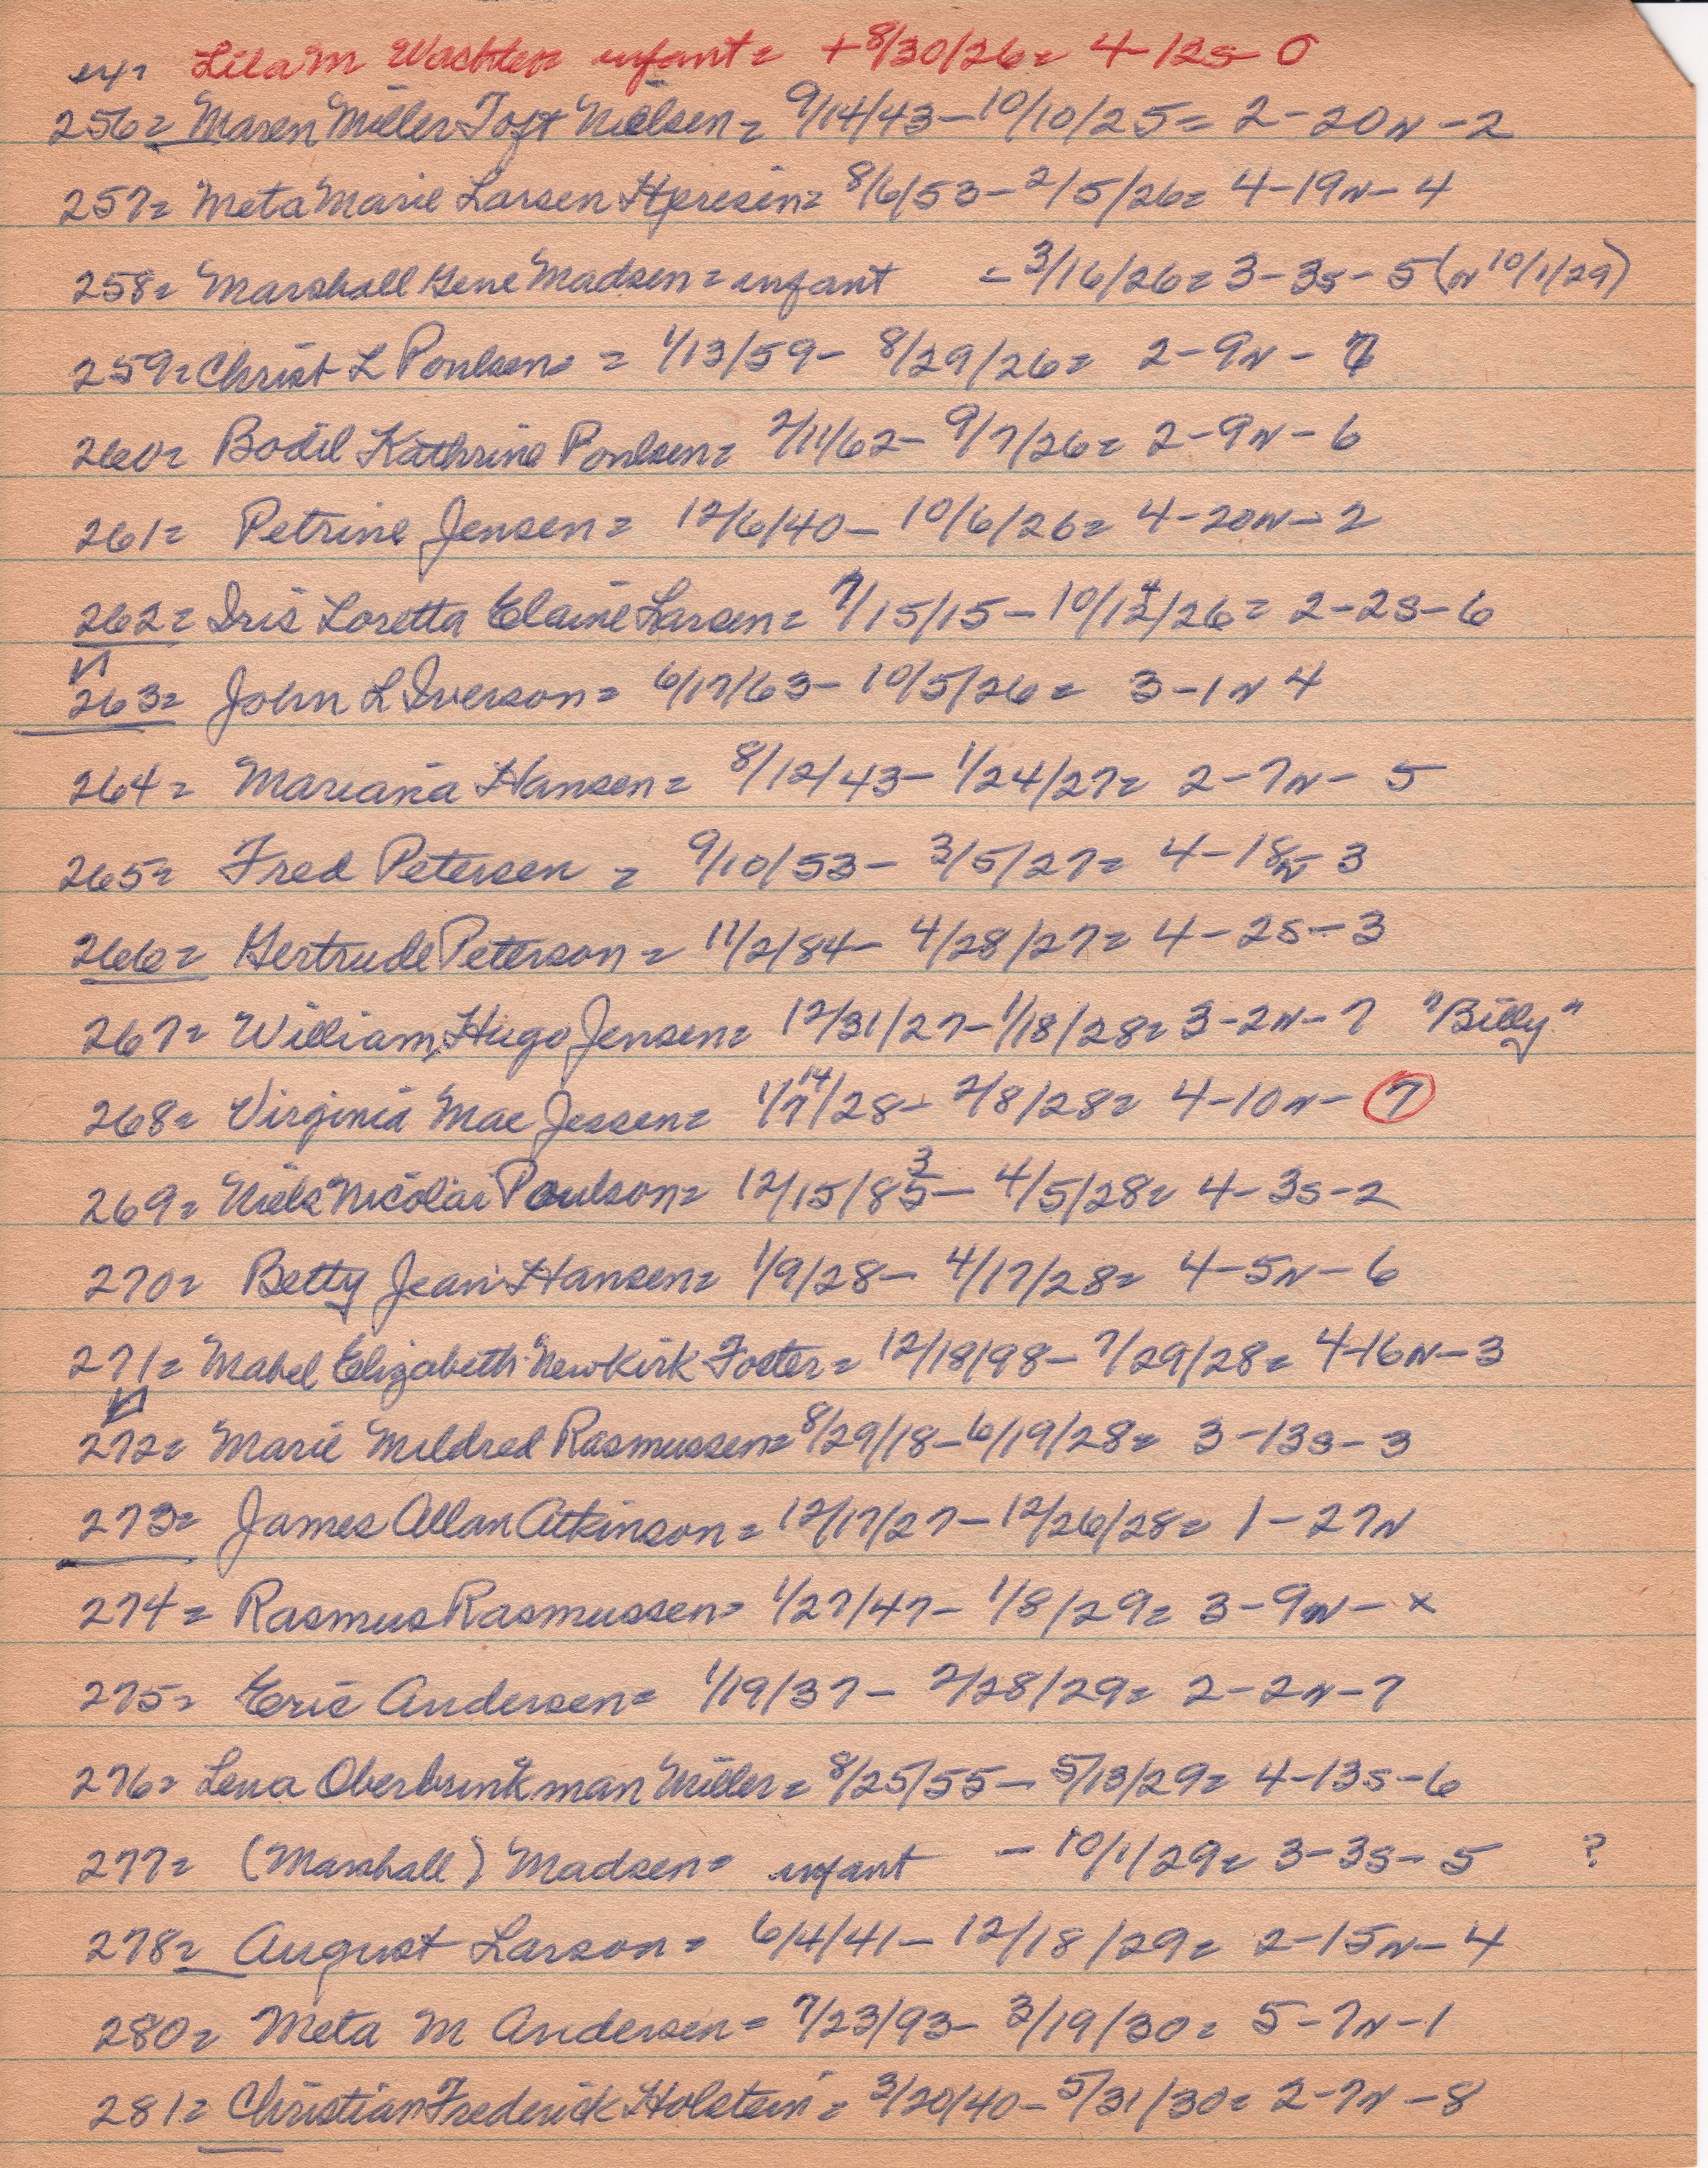 ex= Lila M Wachter= infant= +8/30/26= 4-12s-0
256= Maren Miller Toft Nielsen= 9/14/43-10/10/25= 2-20N-2
257= Meta Marie Larsen = 8/6/53-2/5/26= 4-19N-4
258= Marshall Gene Madsen= infant =3/16/26= 3-3s-5 (N 10/1/29)
259= Christ L Poulsen= = 1/13/59- 8/29/26= 2-9N-
260= Bodil Kathrine Poulsen= 2/11/62- 9/7/26= 2-9N-6
261= Petrine Jensen= 12/6/40- 10/6/26= 4-20N-2
262= Iris Loretta Elaine Larsen= 7/15/15- 10/12/26= 2-2S-6
263= John L Iverson= 6/17/63- 10/5/26= 3-1N 4
264= Mariana Hansen= 8/12/43- 1/24/27= 2-7N- 5
265= Fred Petersen = 9/10/53- 3/5/27= 4-18N-3
266= Gertrude Peterson= 11/2/84- 4/28/27= 4-2S-3
267= William Hugo Jensen= 12/31/27-1/18/28= 3-2N-7 "Billy"
268= Virginia Mae Jessen= 1/7 14/28- 2/8/28= 4-10N-7
269= Niels Nicolai Poulson= 12/15/85 3- 4/5/28= 4-3s-2
270= Betty Jean Hansen= 1/9/28- 4/17/28= 4-5N-6
271= Mabel Elizabeth Newkirk Foster= 12/18/98- 7/29/28= 4-16N-3
272= Marie Mildred Rasmussen= 8/29/18-6/19/28= 3-13s-3
273= James Allan Atkinson= 12/17/27-12/26/28= 1-27N
274= Rasmus Rasmussen= 1/27/47- 1/8/29= 3-9N-x
275= Eric Andersen= 1/19/37- 2/28/29= 2-2N-7
276= Lena Oberbrinkman Miller= 8/25/55- 5/13/29= 4-13s-6
277= (Marshall) Madsen= infant - 10/1/29= 3-3s-5 ?
278= August Larson= 6/4/41- 12/18/29= 2-15N-4
280= Meta M Andersen= 7/23/93- 3/19/30= 5-7N-1
281= Christian Frederick Holstein= 3/20/40- 5/31/30= 2-7N-8